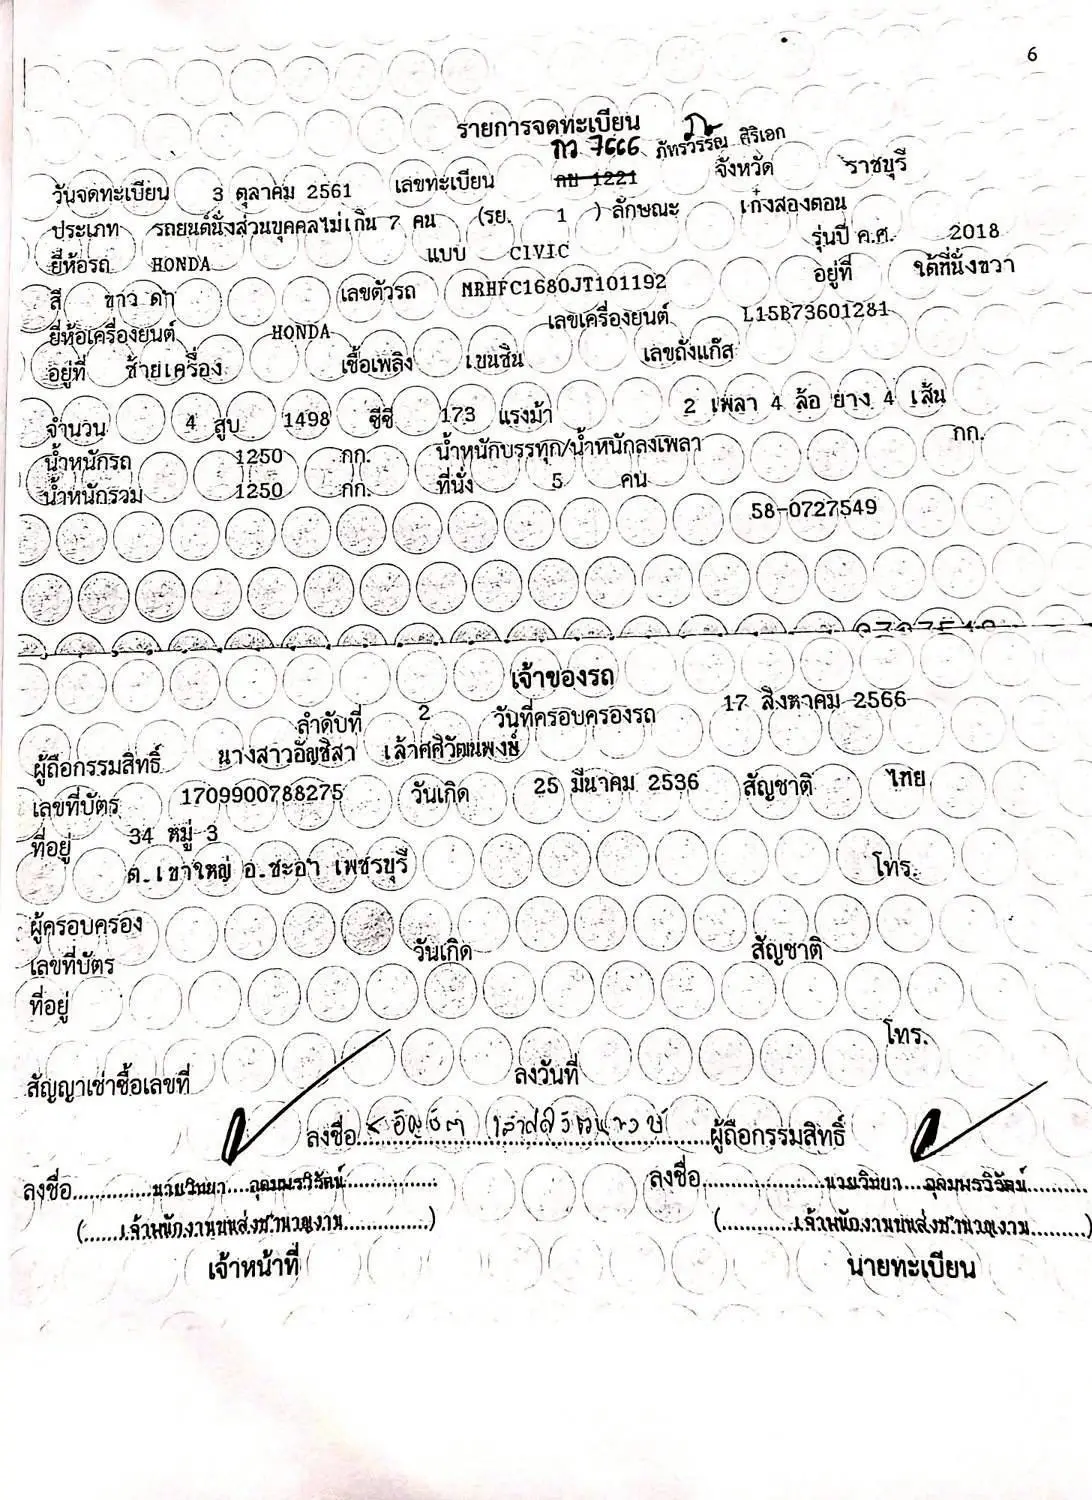 6
รายการจดทะเบียน
กว 7666 ภัทรวรรณ ศิริเอก
วันจดทะเบียน 3 ตุลาคม 2561 เลขทะเบียน กย 1221 จังหวัด ราชบุรี
ประเภท รถยนต์นั่งส่วนบุคคลไม่เกิน 7 คน (รย. 1 ) ลักษณะ เก๋งสองตอน
ยี่ห้อรถ HONDA แบบ CIVIC รุ่นปี ค.ศ. 2018
สี ขาว ดำ เลขตัวรถ MRHFC1680JT101192 อยู่ที่ ใต้ที่นั่งขวา
ยี่ห้อเครื่องยนต์ HONDA เลขเครื่องยนต์ L15B73601281
อยู่ที่ ซ้ายเครื่อง เชื้อเพลิง เบนซิน เลขถังแก๊ส
จำนวน 4 สูบ 1498 ซีซี 173 แรงม้า 2 เพลา 4 ล้อ ยาง 4 เส้น
น้ำหนักรถ 1250 กก. น้ำหนักบรรทุก/น้ำหนักลงเพลา กก.
น้ำหนักรวม 1250 กก. ที่นั่ง 5 คน
58-0727549
เจ้าของรถ
ลำดับที่ 2 วันที่ครอบครองรถ 17 สิงหาคม 2566
ผู้ถือกรรมสิทธิ์ นางสาวอัญชิสา เล้าศศิวัฒนพงษ์
เลขที่บัตร 1709900788275 วันเกิด 25 มีนาคม 2536 สัญชาติ ไทย
ที่อยู่ 34 หมู่ 3
ต.เขาใหญ่ อ.ชะอำ เพชรบุรี โทร.
ผู้ครอบครอง
เลขที่บัตร วันเกิด สัญชาติ
ที่อยู่
โทร.
สัญญาเช่าซื้อเลขที่ ลงวันที่
ลงชื่อ ผู้ถือกรรมสิทธิ์
ลงชื่อ นายวิทยา อุดมพรวิรัตน์ ลงชื่อ นายวิทยา อุดมพรวิรัตน์
(เจ้าพนักงานขนส่งชำนาญงาน) (เจ้าพนักงานขนส่งชำนาญงาน)
เจ้าหน้าที่ นายทะเบียน